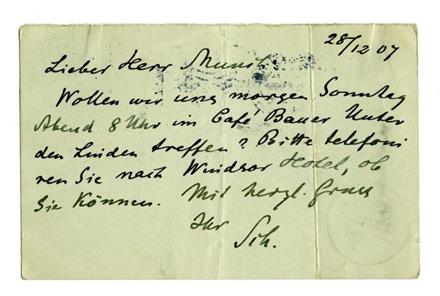 28/12 07
Lieber Herr Munch
Wollen wir uns morgen Sonntag
Abend 8 Uhr im Café Bauer Unter
den Linden treffen? Bitte telefoni
ren Sie nach Windsor Hotel, ob
Sie Können. Mit herzl. Gruss
Ihr
Sch.